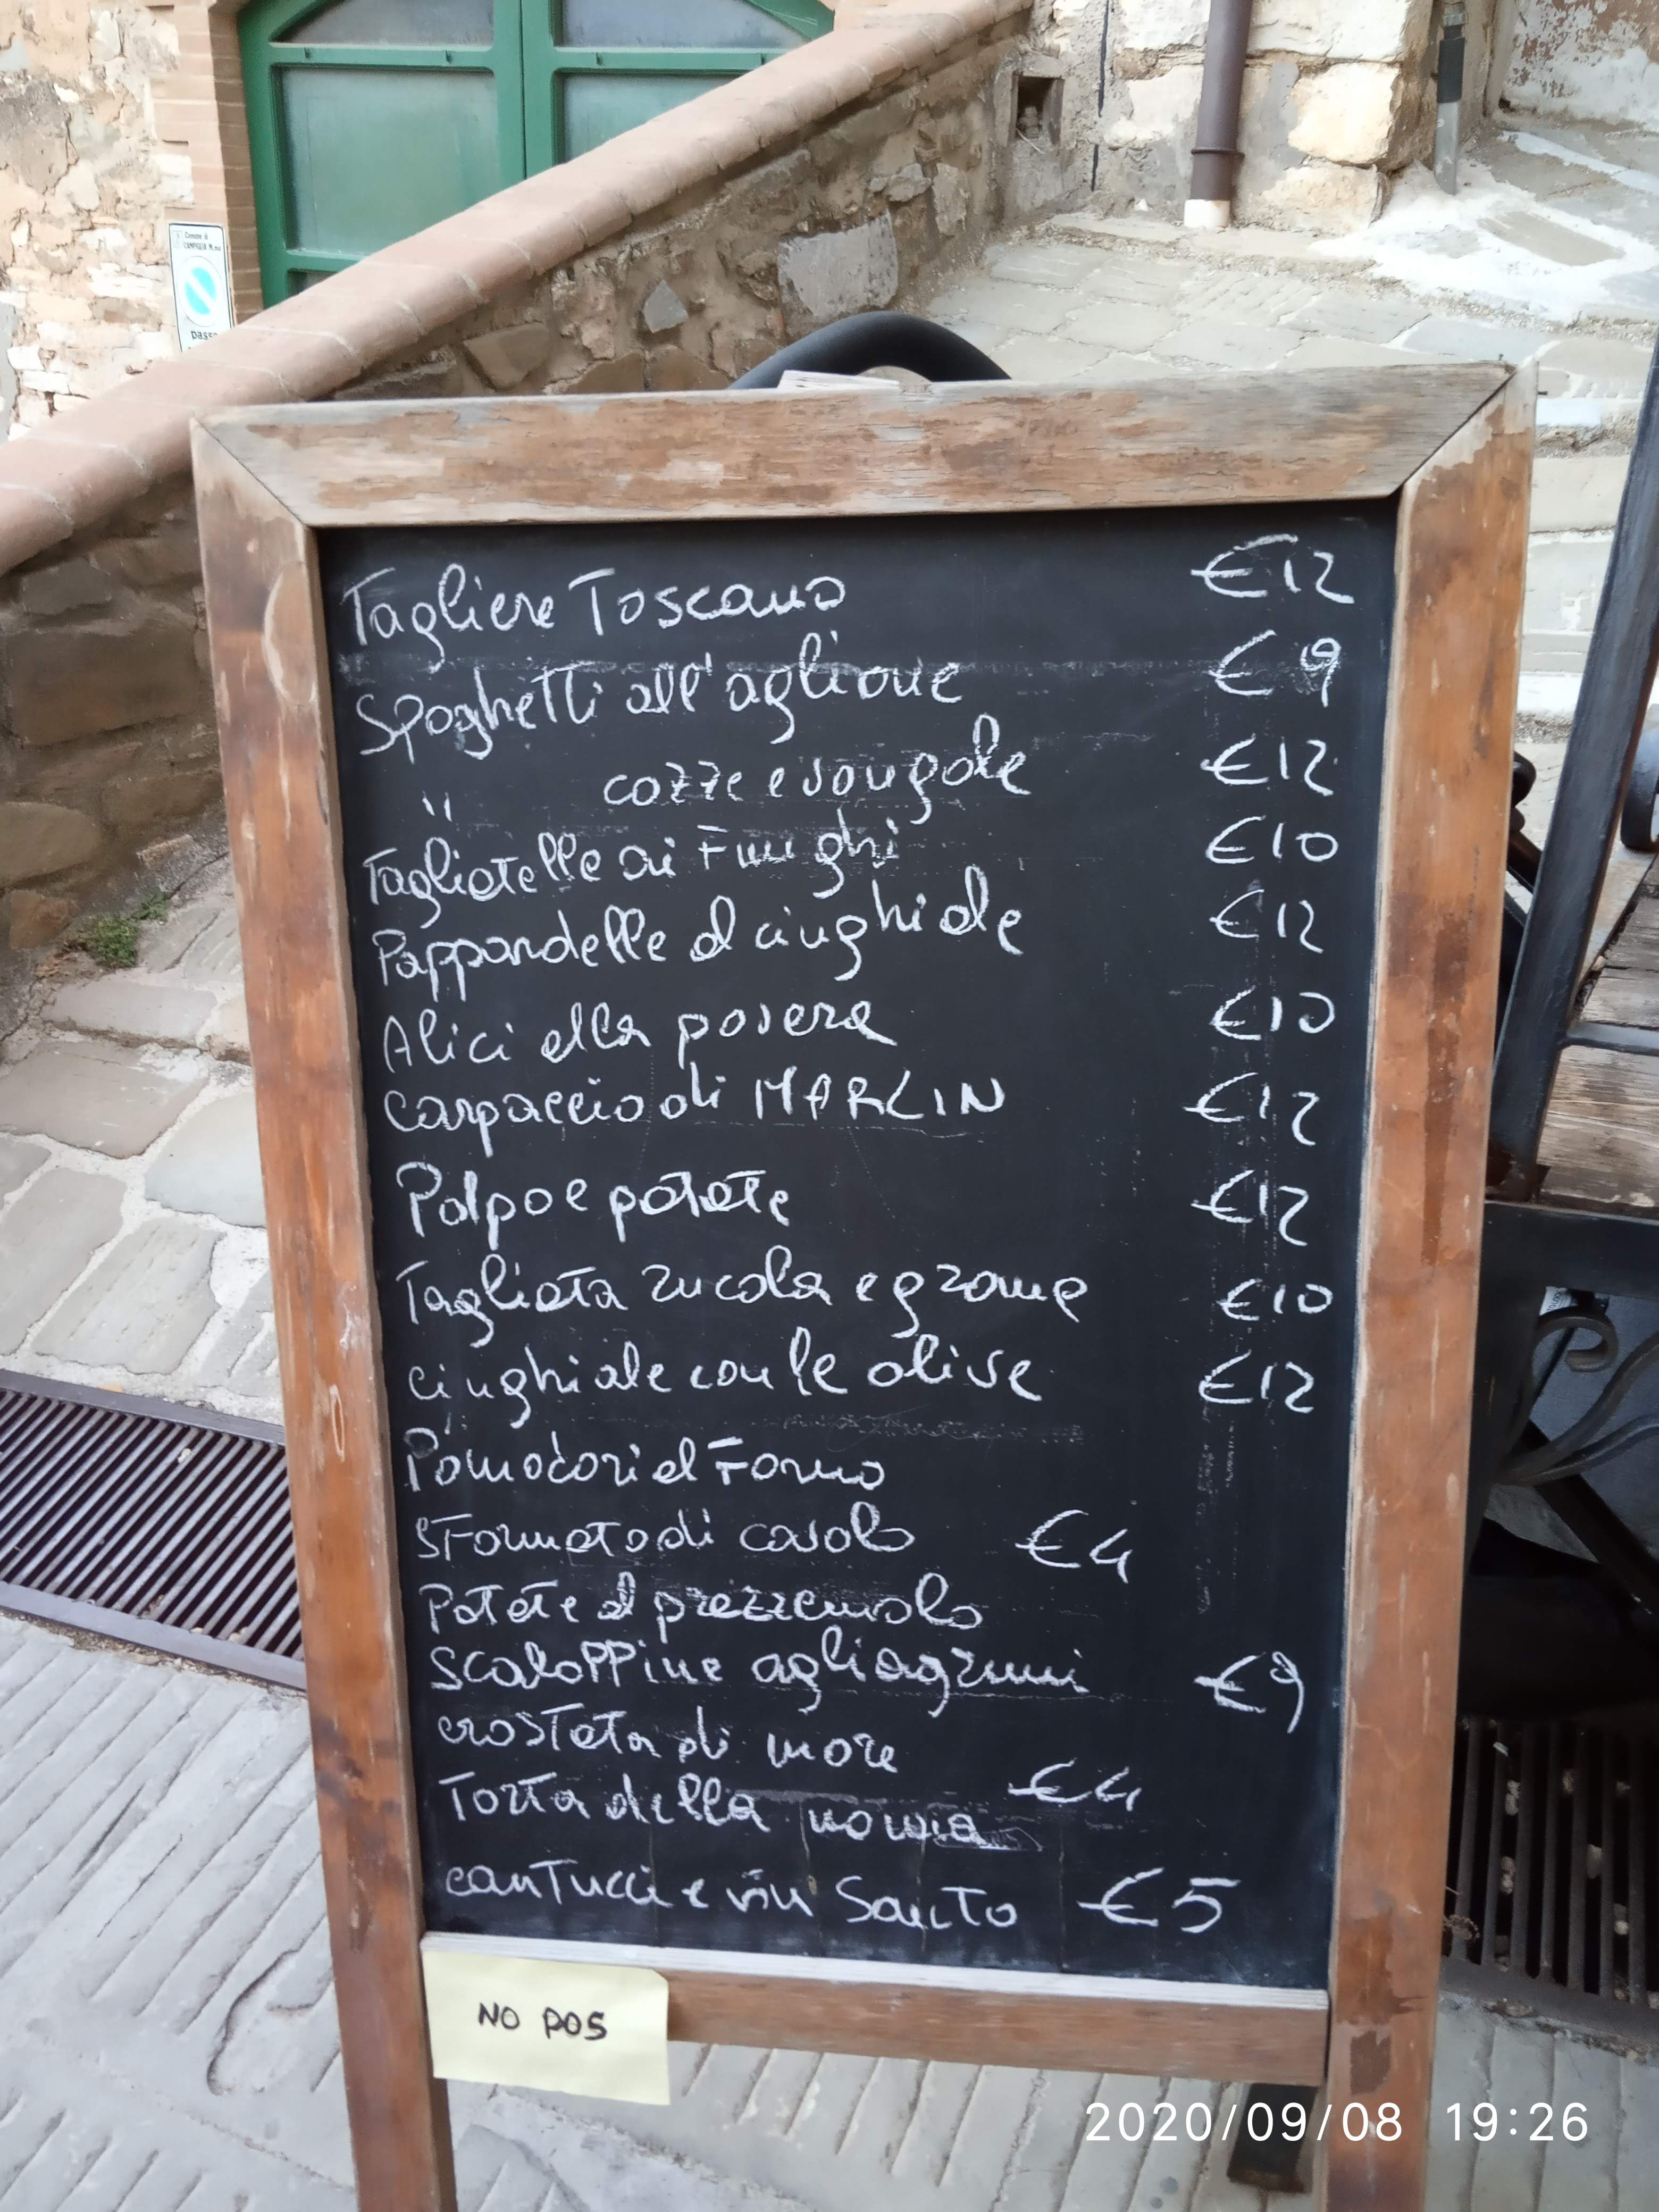 Comune di
CAMPIGLIA M.ma
passo
Tagliere Toscano €12
Spaghetti all'aglione €9
" cozze e vongole €12
Tagliatelle ai Funghi €10
Pappardelle al cinghiale €12
Alici alla povera €10
Carpaccio di MARLIN €12
Polpo e patate €12
Tagliata rucola e grana €10
cinghiale con le olive €12
Pomodori al Forno
SFormato di cavolo €4
Patate al prezzemolo
Scaloppine agli agrumi €9
crostata di more
Torta della nonna €4
canTucci e vin SanTo €5
NO POS
2020/09/08 19:26